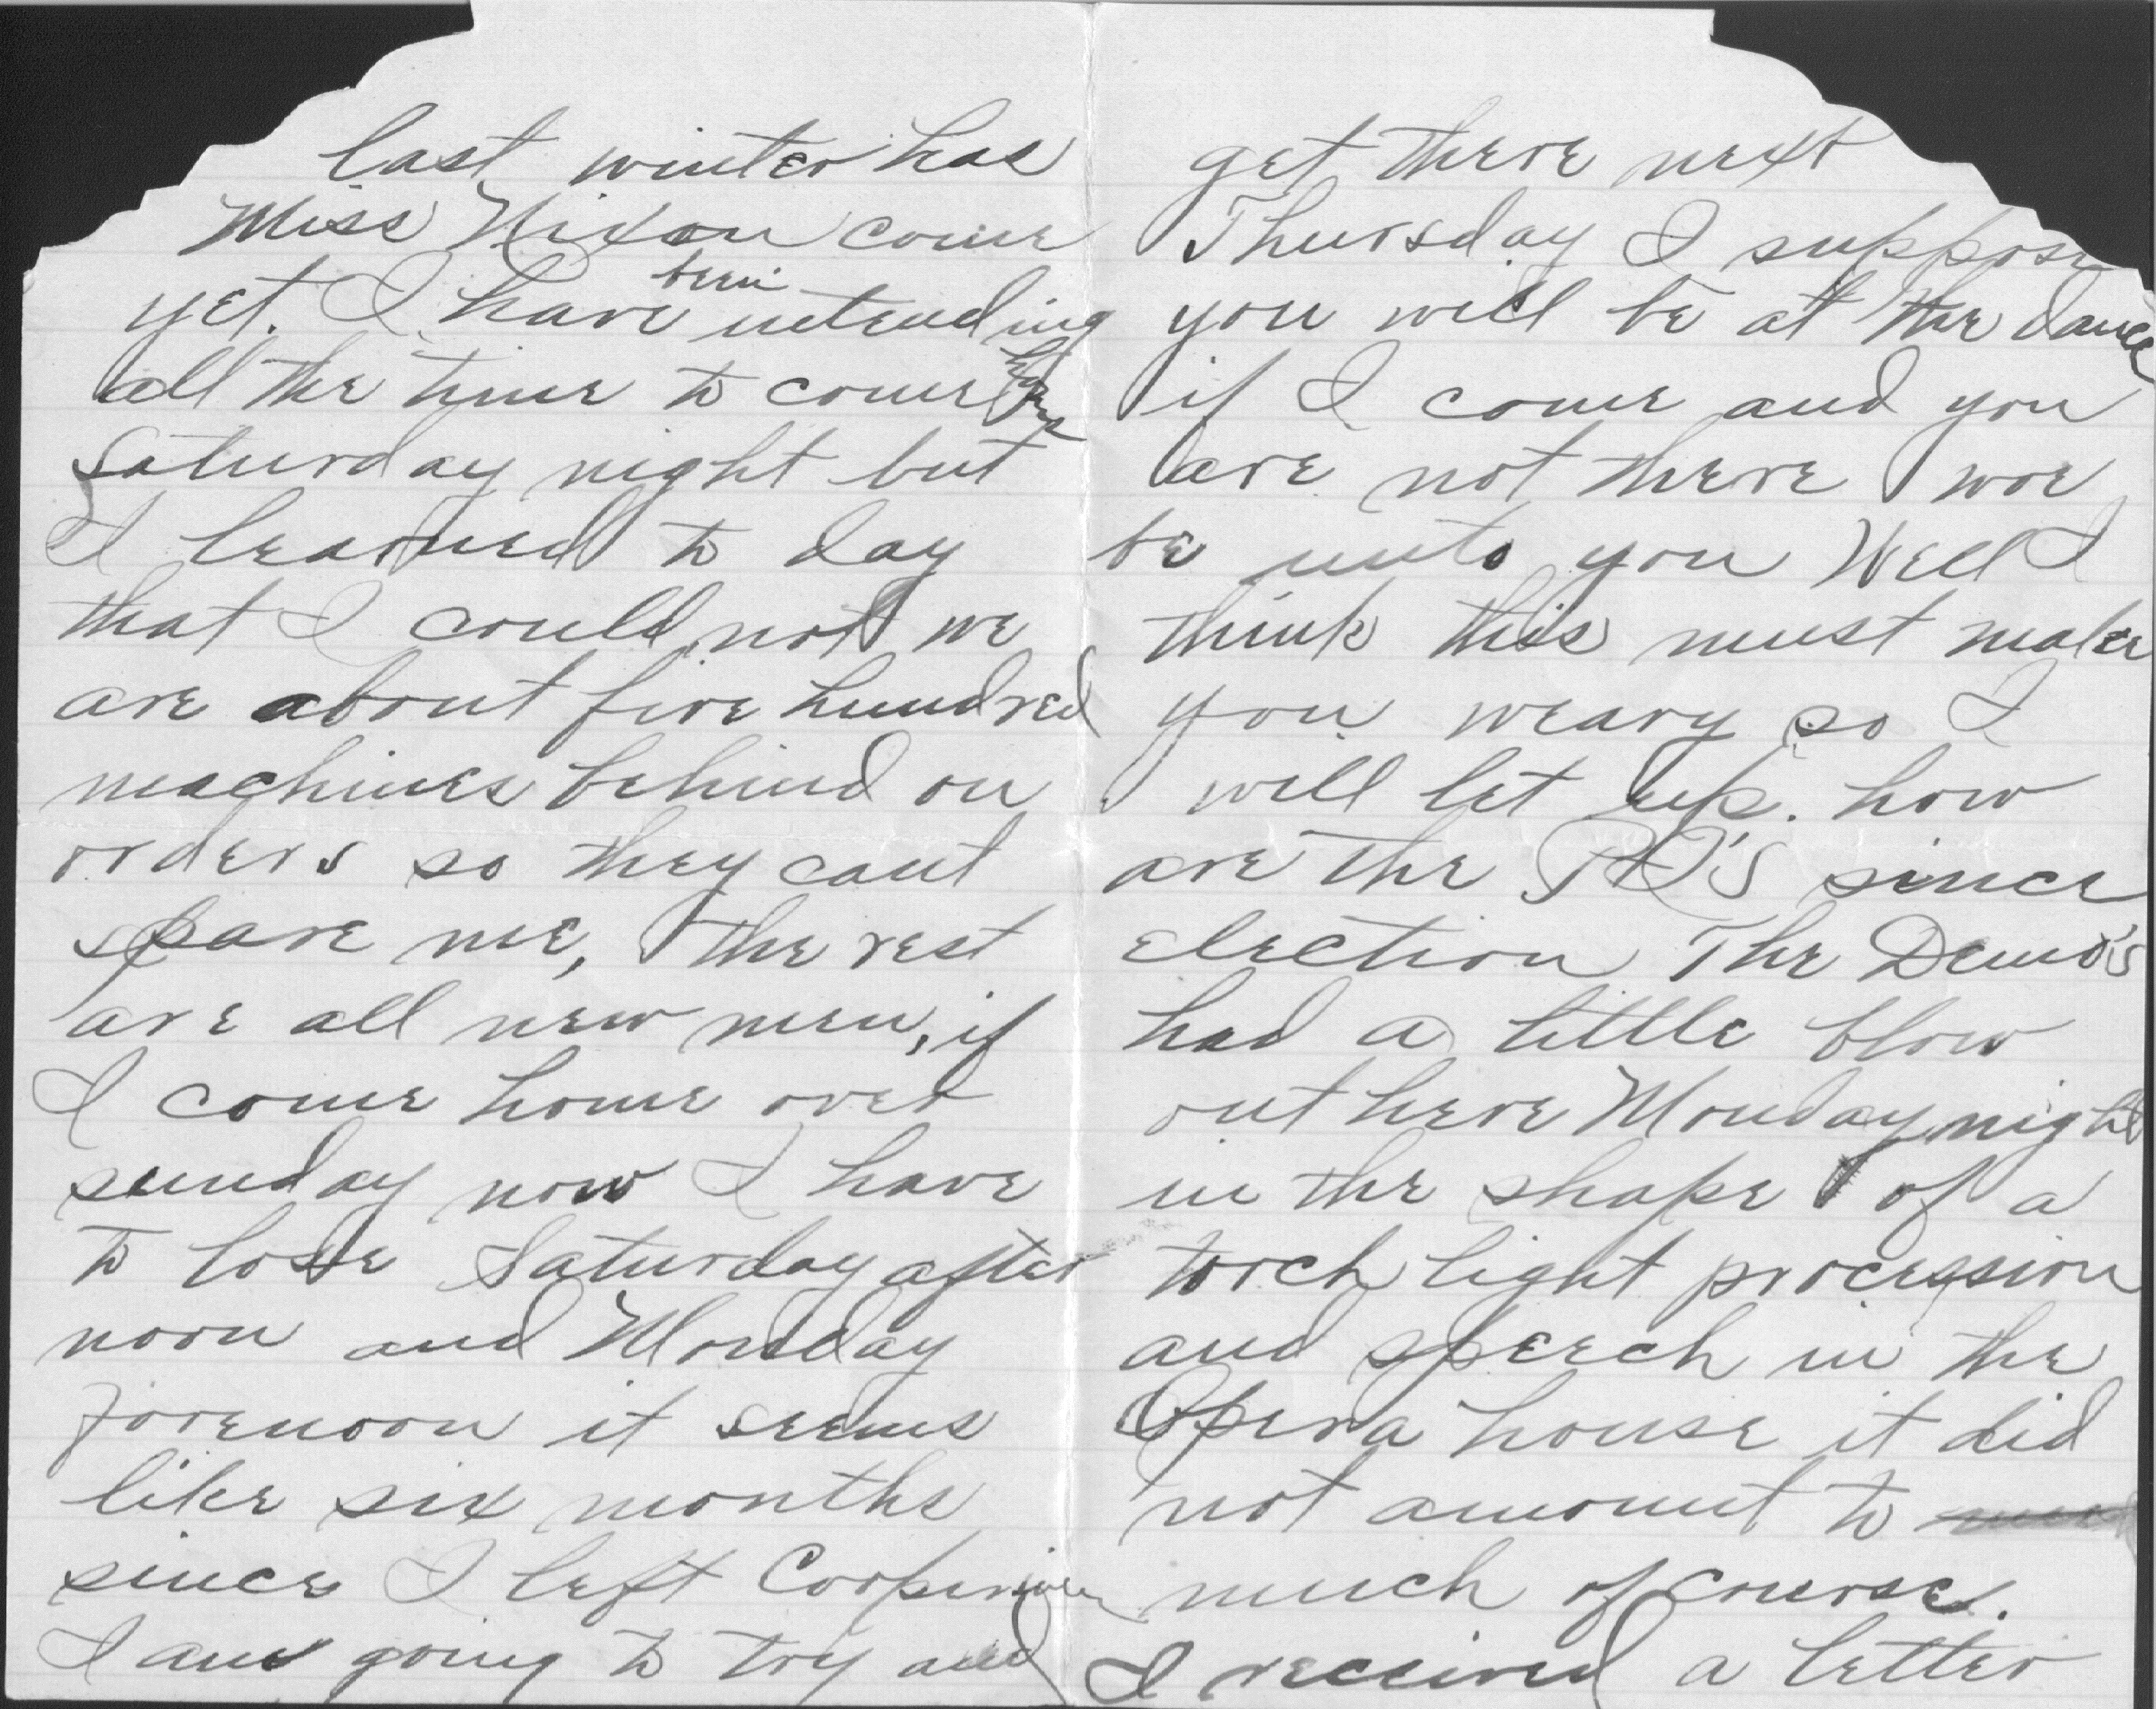 last winter has
Miss Nixon come
yet. I have been intending
all the time to come home
Saturday night but
I learned to day
that I could not we
are about five hundred
machines behind on
orders so they cant
spare me, the rest
are all new men, if
I come home over
sunday now I have
to lose Saturday after
noon and Monday
forenoon it seems
like six months
since I left
I am going to try and
get there next
Thursday I suppose
you will be at the dance
if I come and you
are not there woe
be unto you Well I
think this must make
you weary so I
will let up. how
are the since
election The Demo's
had a little blow
out here Monday night
in the shape of a
torch light procession
and speech in the
Opera house it did
not amount to
much of course.
I received a letter